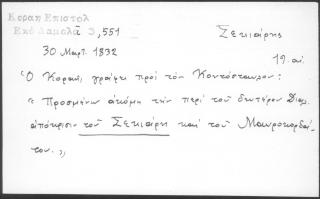 Κοραη Επιστολ
Εκδ Δαμαλᾶ 3,551
Σεκιάρης
30 Μαρτ. 1832
19. αἰ.
Ὁ Κοραῆς γράφει πρὸς τὸν Κοντόσταυλον:
« Προσμένω ἀκόμη τὴν περὶ τοῦ δευτέρου Διαλ.
ἀπόκρισιν τοῦ Σεκιάρη καὶ τοῦ Μαυροκορδά-
του. »